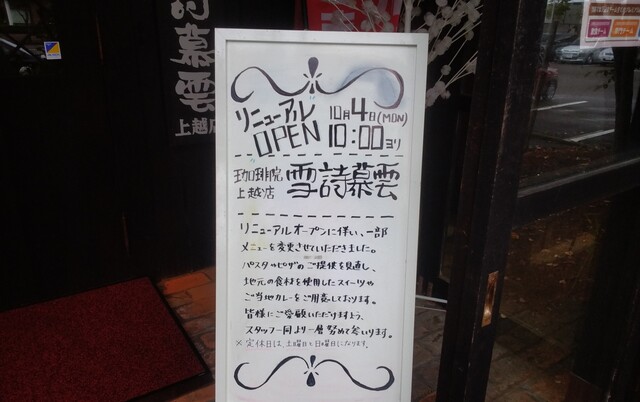 詩慕雲
上越店
リニューアル
OPEN
10月4日(MON)
10:00ヨリ
珈琲院
上越店
雪詩慕雲
リニューアルオープンに伴い、一部
メニューを変更させていただきました。
パスタやピザのご提供を見直し、
地元の食材を使用したスイーツや
ご当地カレーをご用意しております。
皆様にご愛顧いただけますよう、
スタッフ一同より一層努めて参ります。
※定休日は、土曜日と日曜日になります。